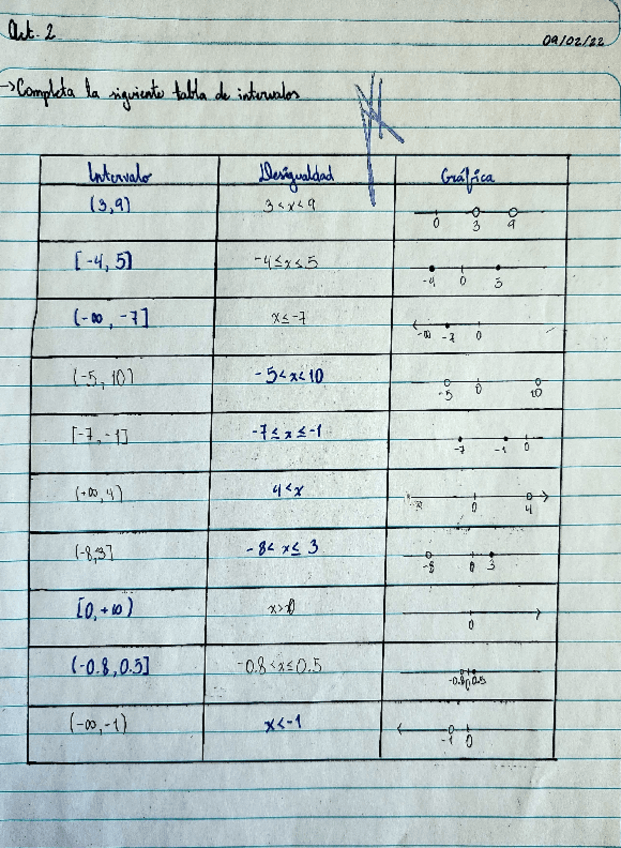 Act. 2
09/02/22
→Completa la siguiente tabla de intervalos
Intervalo Desigualdad Gráfica
(3,9) 3<x<9 0 3 9
[-4, 5] -4≤x≤5 -4 0 5
(-∞, -7] x≤-7 -∞ -7 0
(-5, 10) -5<x<10 -5 0 10
[-7, -1] -7≤x≤-1 -7 -1 0
(+∞, 4) 4<x 0 4
(-8,3] -8<x≤3 -8 0 3
[0,+∞) 0
(-0.8, 0.5] -0.8<x≤0.5 -0.8 0 0.5
(-∞,-1) x<-1 -1 0